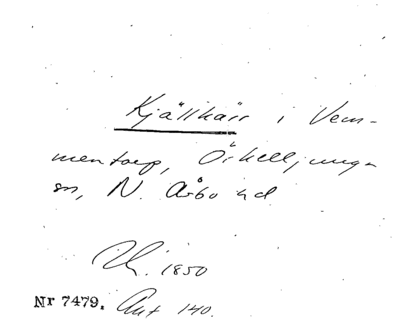 Kjällkärr i Vem-
mentorp, Örkelljunga
sn, N. Åsbo hd
1850
Nr 7479. Akt 140.